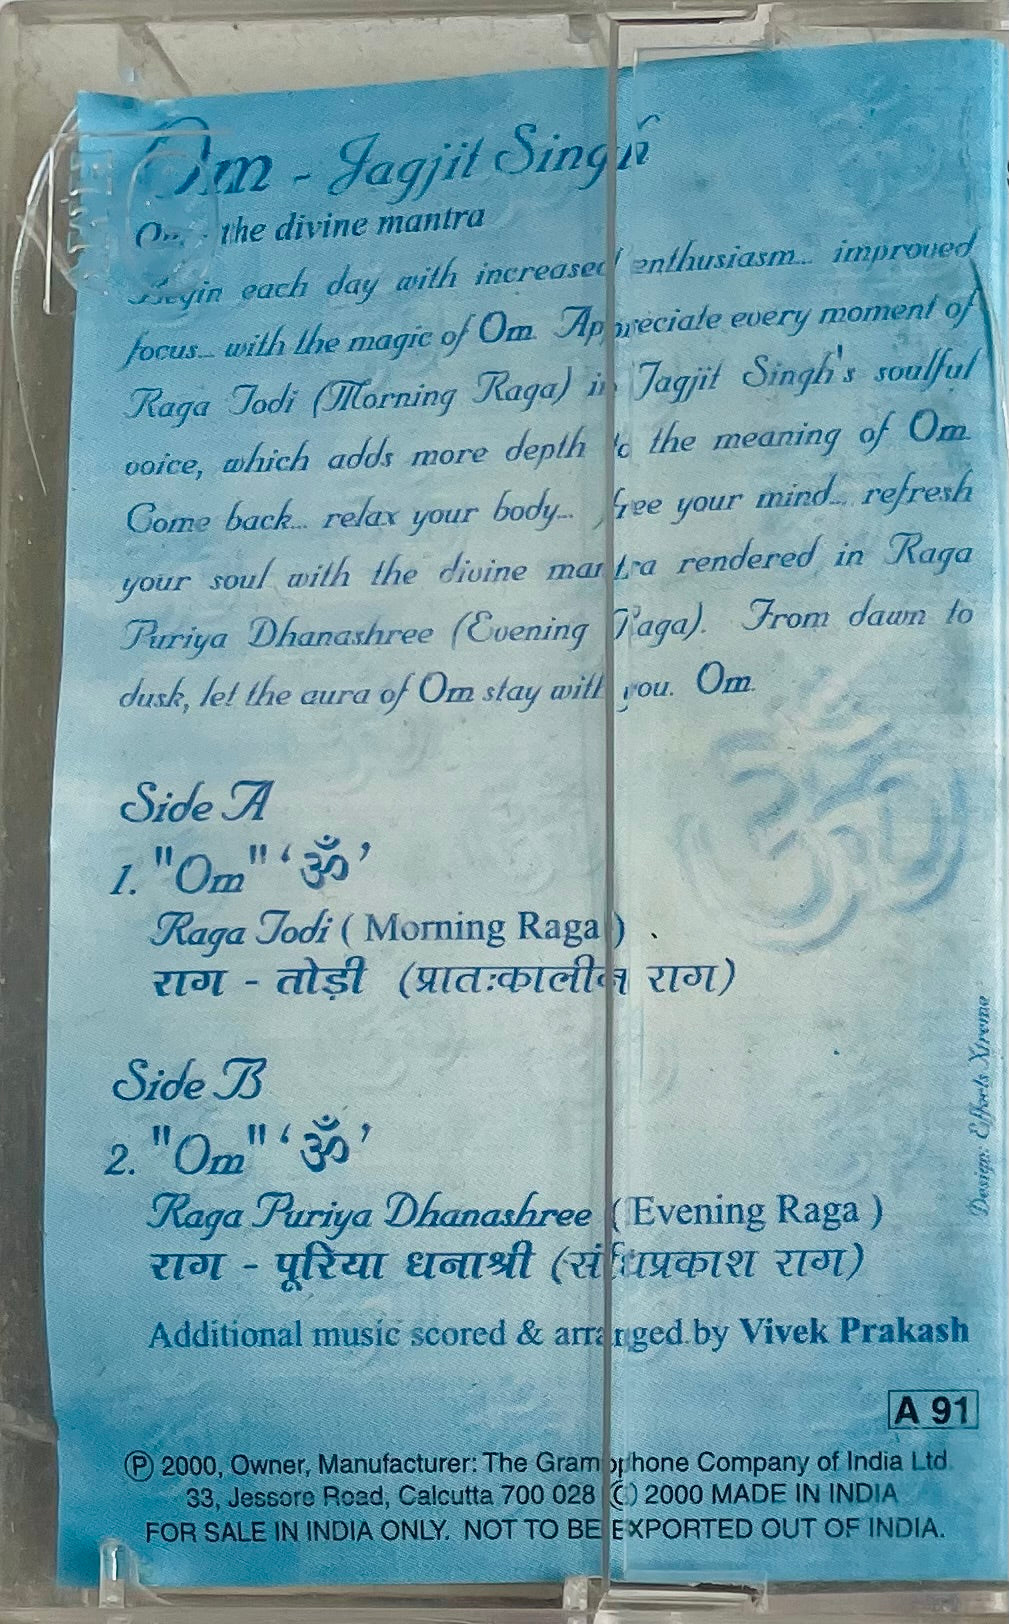 Om - Jagjit Singh
Om - the divine mantra
Begin each day with increased enthusiasm... improved
focus... with the magic of Om. Appreciate every moment of
Raga Todi (Morning Raga) in Jagjit Singh's soulful
voice, which adds more depth to the meaning of Om.
Come back... relax your body... free your mind... refresh
your soul with the divine mantra rendered in Raga
Puriya Dhanashree (Evening Raga). From dawn to
dusk, let the aura of Om stay with you. Om.
Side A
1. "Om" ‘ॐ’
Raga Todi ( Morning Raga )
राग - तोड़ी (प्रातःकालीन राग)
Side B
2. "Om" ‘ॐ’
Raga Puriya Dhanashree ( Evening Raga )
राग - पूरिया धनाश्री (संधिप्रकाश राग)
Additional music scored & arranged by Vivek Prakash
Design: Effects Xtreme
A 91
Ⓟ 2000, Owner, Manufacturer: The Gramophone Company of India Ltd.
33, Jessore Road, Calcutta 700 028 © 2000 MADE IN INDIA
FOR SALE IN INDIA ONLY. NOT TO BE EXPORTED OUT OF INDIA.